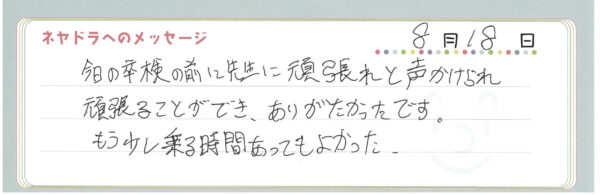 ネヤドラへのメッセージ
8月18日
今日の卒検の前に先生に頑張れと声かけられ
頑張ることができ、ありがたかったです。
もう少し乗る時間あってもよかった。